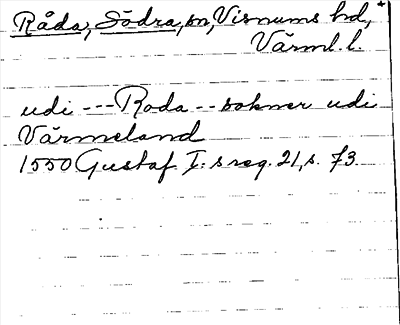 Råda, Södra, sn, Visnums hd,
Värml. l.
udi --- Roda -- sokner udi
Värmeland
1550 Gustaf I:s reg. 21, s. 73